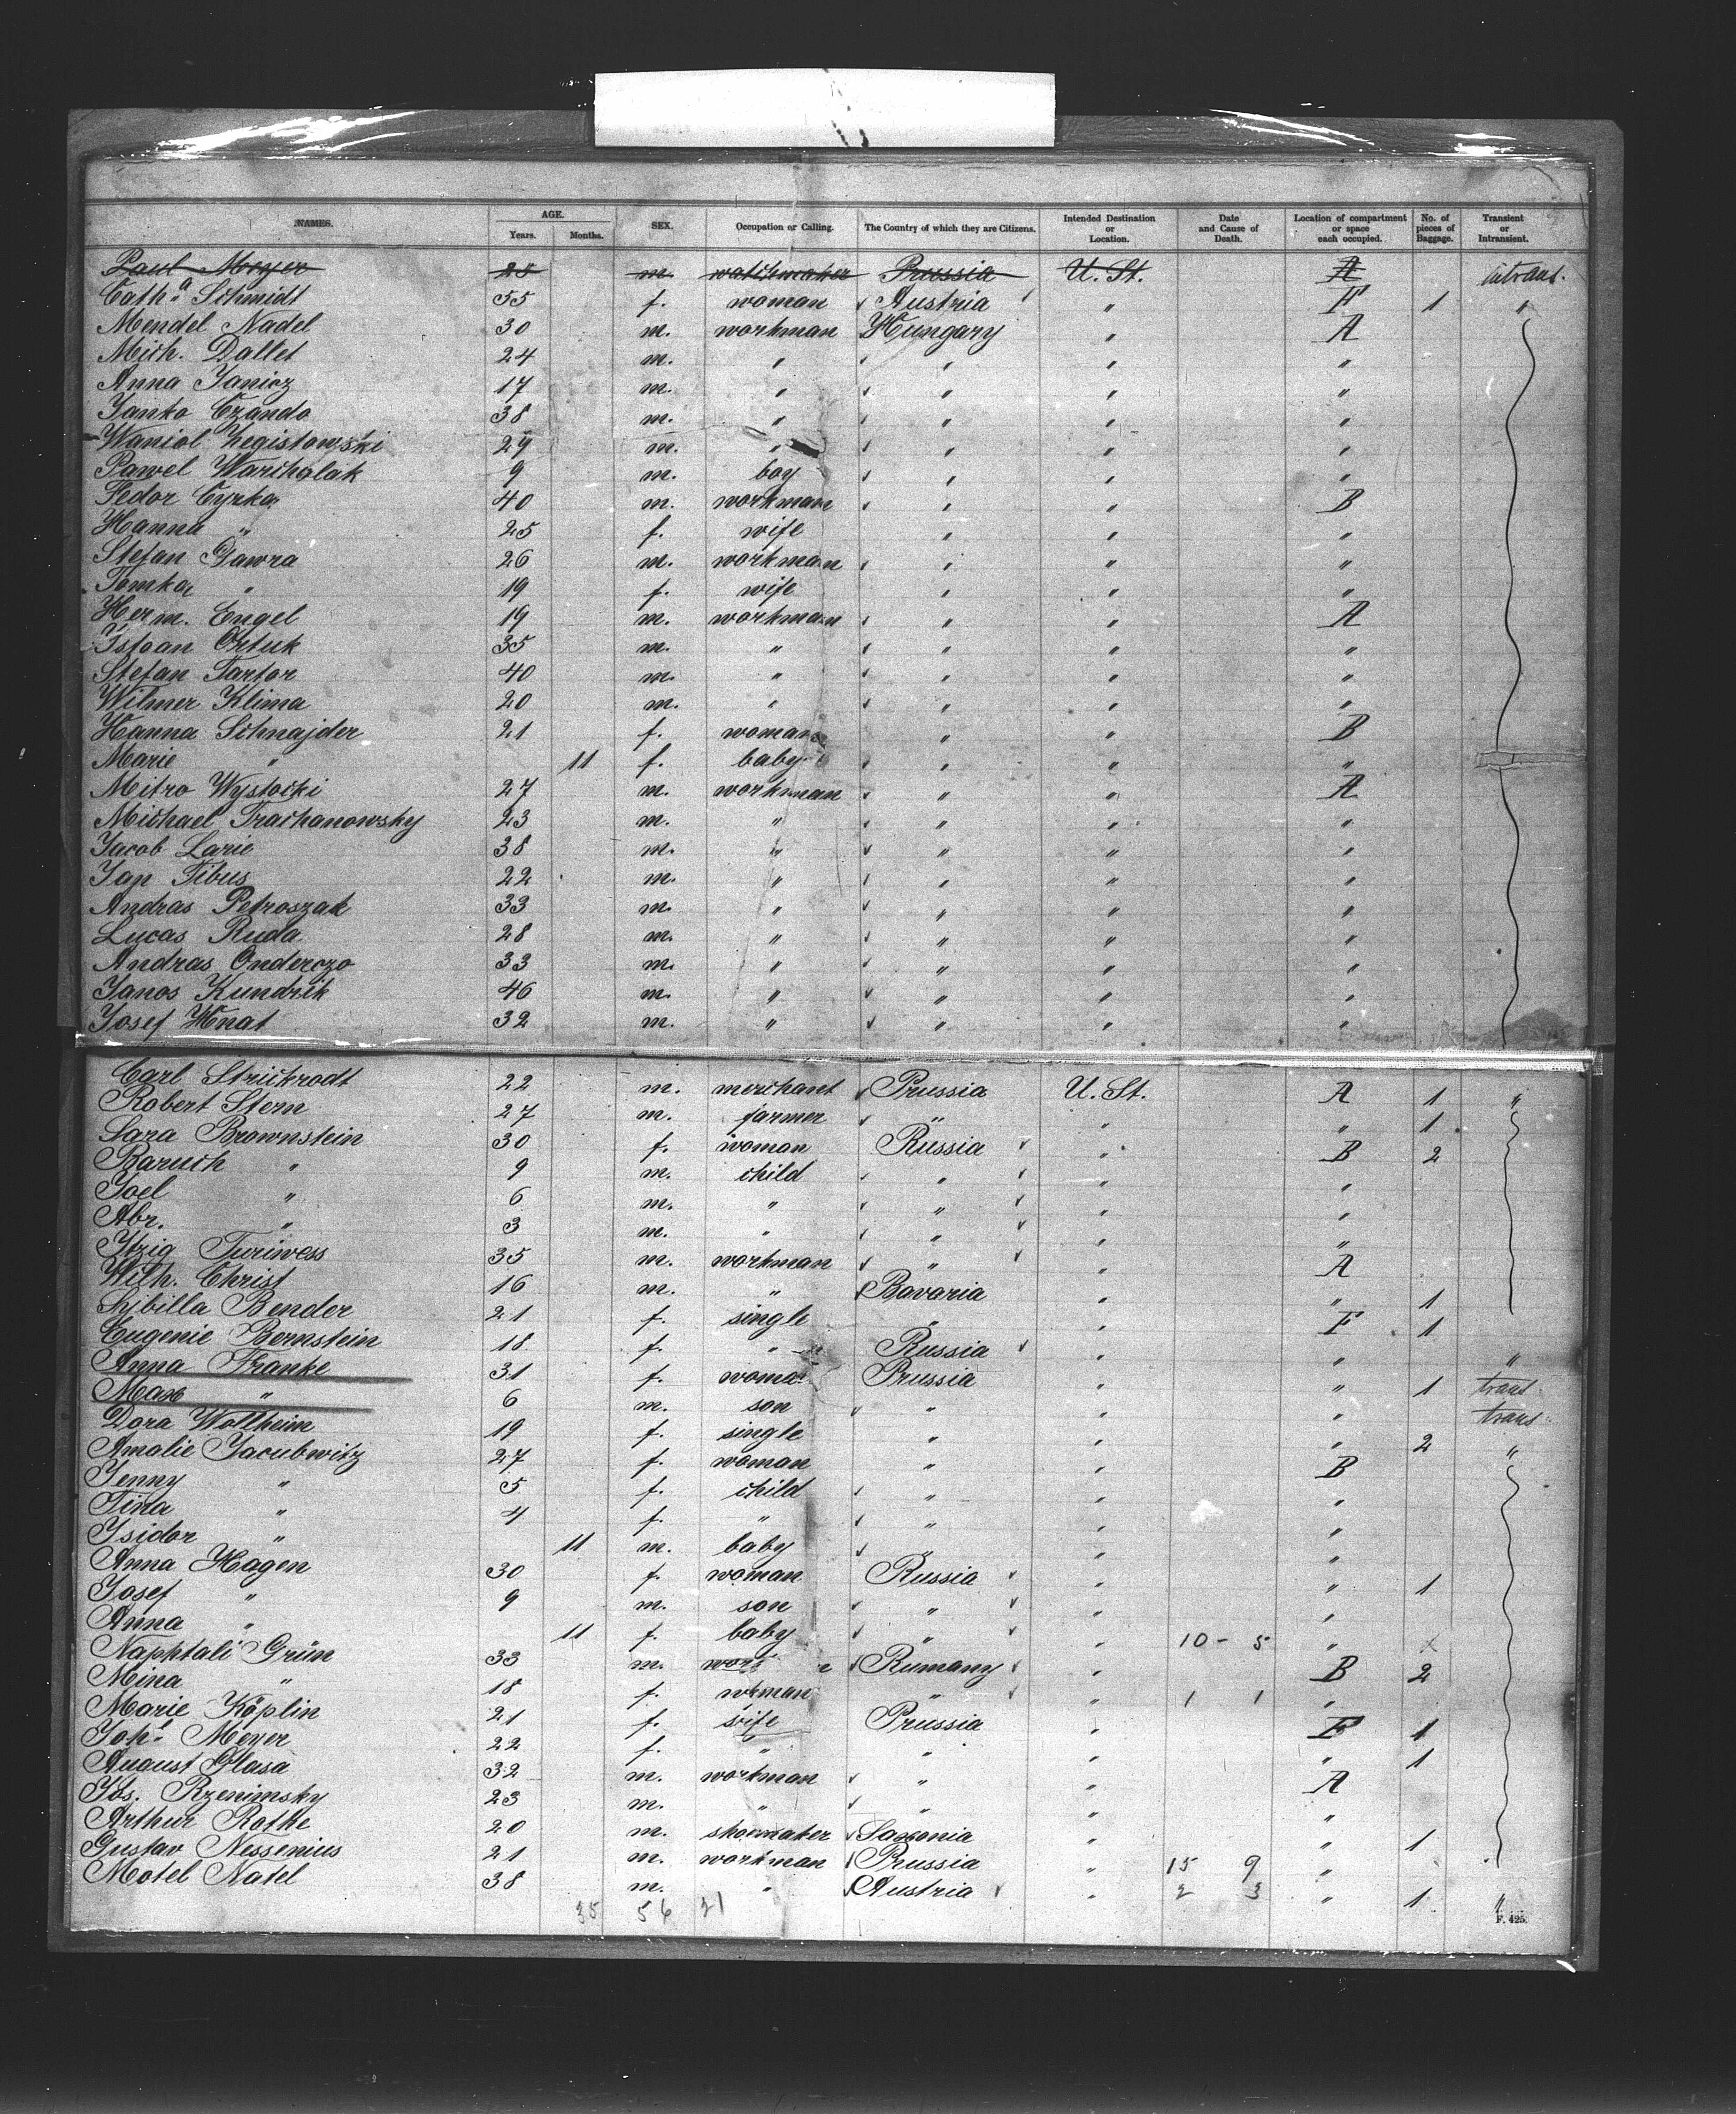 NAMES. AGE. Years. Months. SEX. Occupation or Calling. The Country of which they are Citizens. Intended Destination or Location. Date and Cause of Death. Location of compartment or space each occupied. No. of pieces of Baggage. Transient or Intransient.
Paul Meyer 25 m. watchmaker Prussia U. St. A intrans.
Cath.a Schmidt 55 f. woman Austria " F 1 "
Mendel Nadel 30 m. workman Hungary " A
Mich. Dallet 24 m. " " " "
Anna Janicz 17 m. " " " "
Janko Czando 38 m. " " " "
Waniol Zegistowski 29 m. " " " "
Pawel Warcholak 9 m. boy " " "
Fedor Cyrka 40 m. workman " " B
Hanna " 25 f. wife " " "
Stefan Gawra 26 m. workman " " "
Tomka " 19 f. wife " " "
Herm. Engel 19 m. workman " " A
Istoan Ortuk 35 m. " " " "
Stefan Tartor 40 m. " " " "
Wilmer Klima 20 m. " " " "
Hanna Schnajder 21 f. woman " " B
Marie " 11 f. baby " " "
Mitro Wystocki 27 m. workman " " A
Michael Trachanowsky 23 m. " " " "
Jacob Larie 38 m. " " " "
Jan Tibus 22 m. " " " "
Andras Petroszak 33 m. " " " "
Lucas Ruda 28 m. " " " "
Andras Onderczo 33 m. " " " "
Janos Kundrik 46 m. " " " "
Josef Hnat 32 m. " " " "
Carl Strickrodt 22 m. merchant Prussia U. St. A 1 "
Robert Stern 27 m. farmer " " " 1
Sara Brownstein 30 f. woman Russia " B 2
Baruch " 9 m. child " " "
Joel " 6 m. " " " "
Abr. " 3 m. " " " "
Itzig Turiwess 35 m. workman " " A
Wilh. Christ 16 m. " Bavaria " " 1
Sibilla Bender 21 f. single " " F 1
Eugenie Bernstein 18 f. " Russia " " "
Anna Franke 31 f. woman Prussia " " 1 trans.
Max " 6 m. son " " " trans.
Dora Wollheim 19 f. single " " " 2 "
Amalie Jacubwitz 27 f. woman " " B
Jenny " 5 f. child " " "
Tina " 4 f. " " " "
Isidor " 11 m. baby " " "
Anna Hagen 30 f. woman Russia " " 1
Josef " 9 m. son " " "
Anna " 11 f. baby " " 10 - 5 " x
Naphtali Grün 33 m. Rumany B 2
Mina " 18 f. woman " " 1 1 "
Marie Köplin 21 f. wife Prussia " F 1
Joh.e Meyer 22 f. " " " " 1
August Glasa 32 m. workman " " A
Jos. Rzenimsky 23 m. " " " "
Arthur Rothe 20 m. shoemaker Saxonia " " 1
Gustav Nessenius 21 m. workman Prussia " 15 9 "
Motel Natel 38 m. " Austria " 2 3 " 1 "
35 56 21
F. 425.